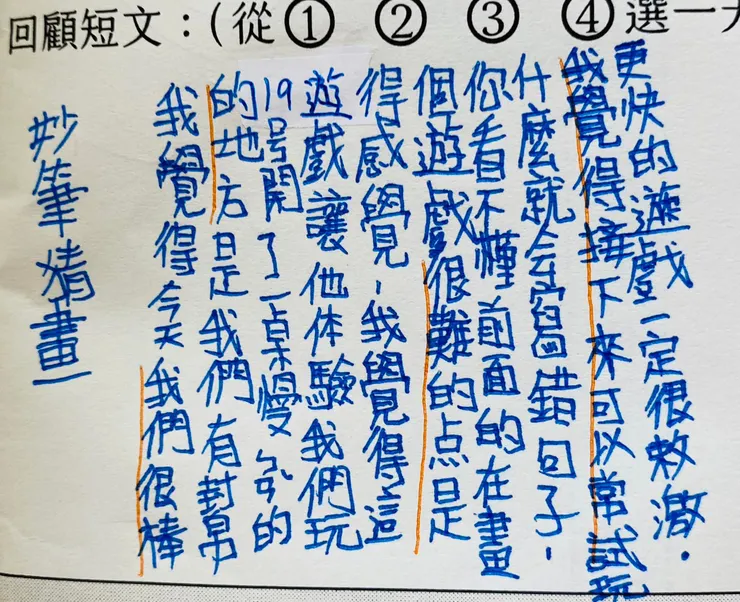 回顧短文：(從① ② ③ ④選一
妙筆猜畫
我覺得今天我們很棒
的地方是我們有封帛
19号開了一桌慢分的
遊戲讓他体驗我們玩
得感覺，我覺得這
個遊戲很難的点是
你看不懂前面的在畫
什麼就会寫錯句子．
我覺得接下來可以常試玩
更快的遊戲一定很敕激．